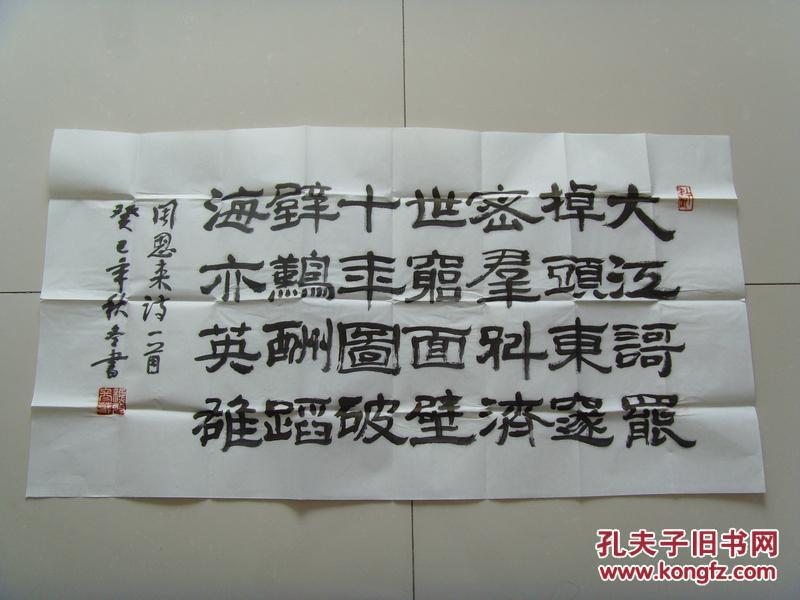 大江謌罷
掉頭東邃
密羣科濟
世窮面壁
十年圖破
壁難酬蹈
海亦英雄
周恩来詩一首
癸巳年秋書
孔夫子旧书网
www.kongfz.com